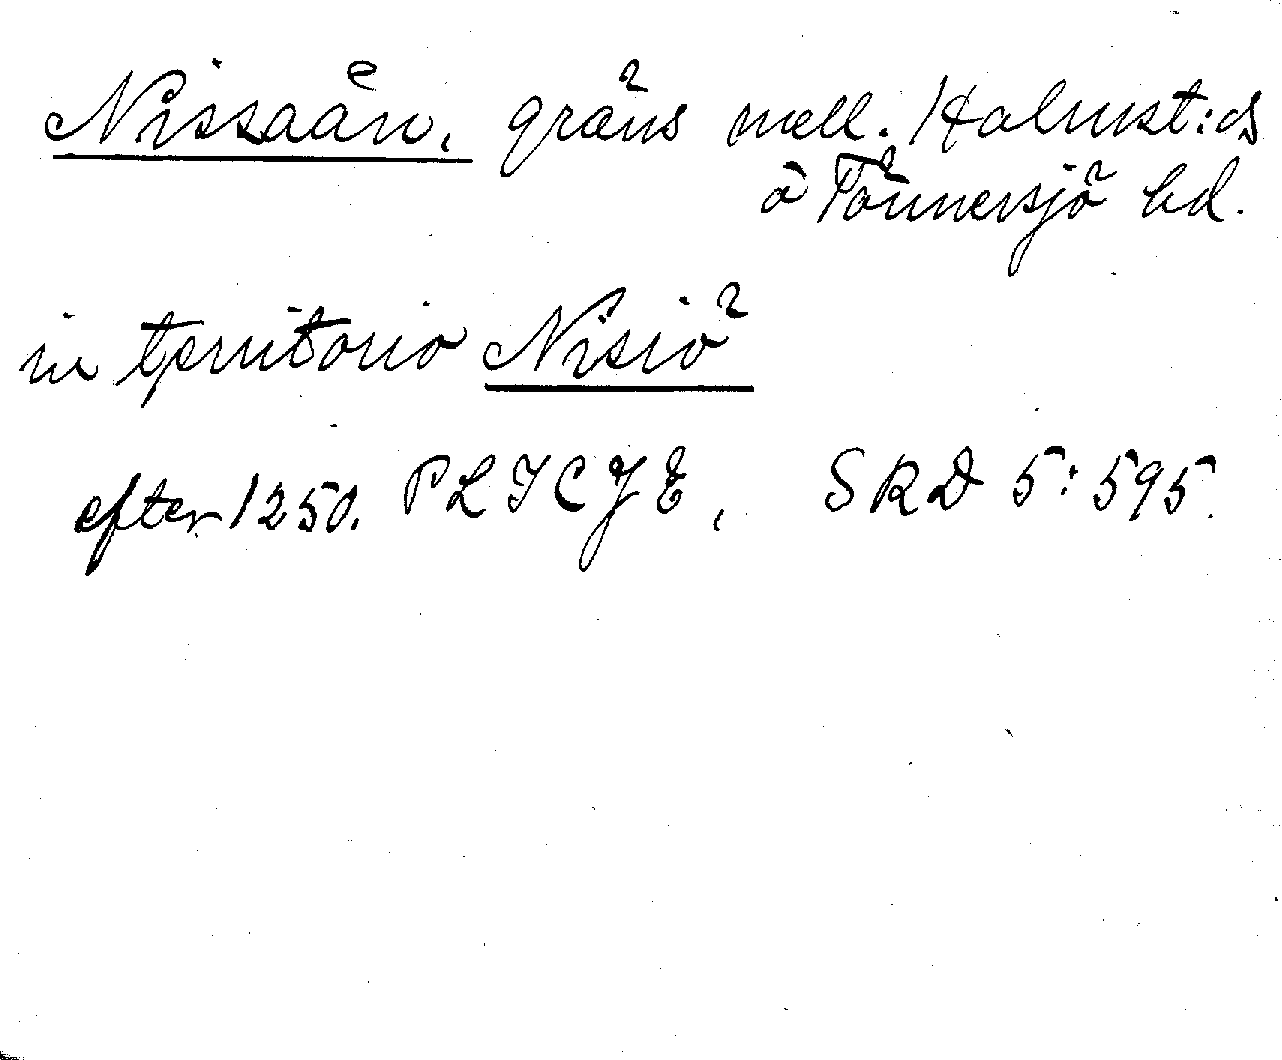 Nissaån, gräns mell. Halmst:ds
o Tönnersjö hd.
in territorio Nisiö
efter 1250. PLICJE, SRD 5:595.